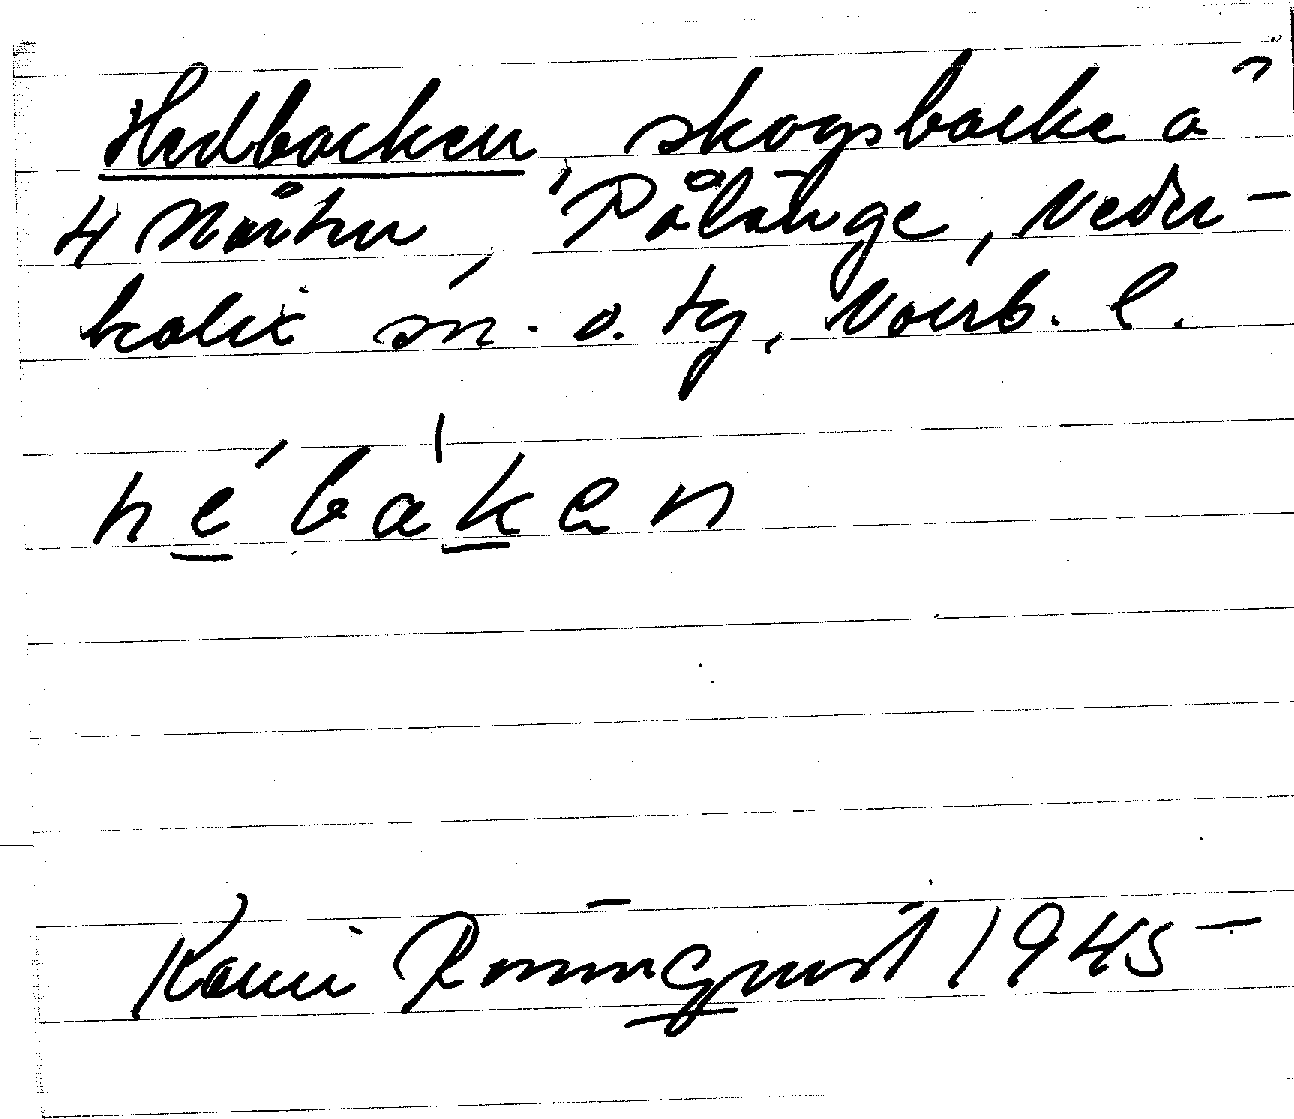 Hedbacken, skogsbacke å
4 Mårten, Pålänge, Neder-
kalix sn. o. tg, Norrb. l.
hébáken
Rönnqvist 1945